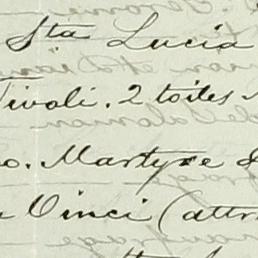 Sta Lucia
Tivoli. 2 toiles
o. Martyre d
Vinci (attr